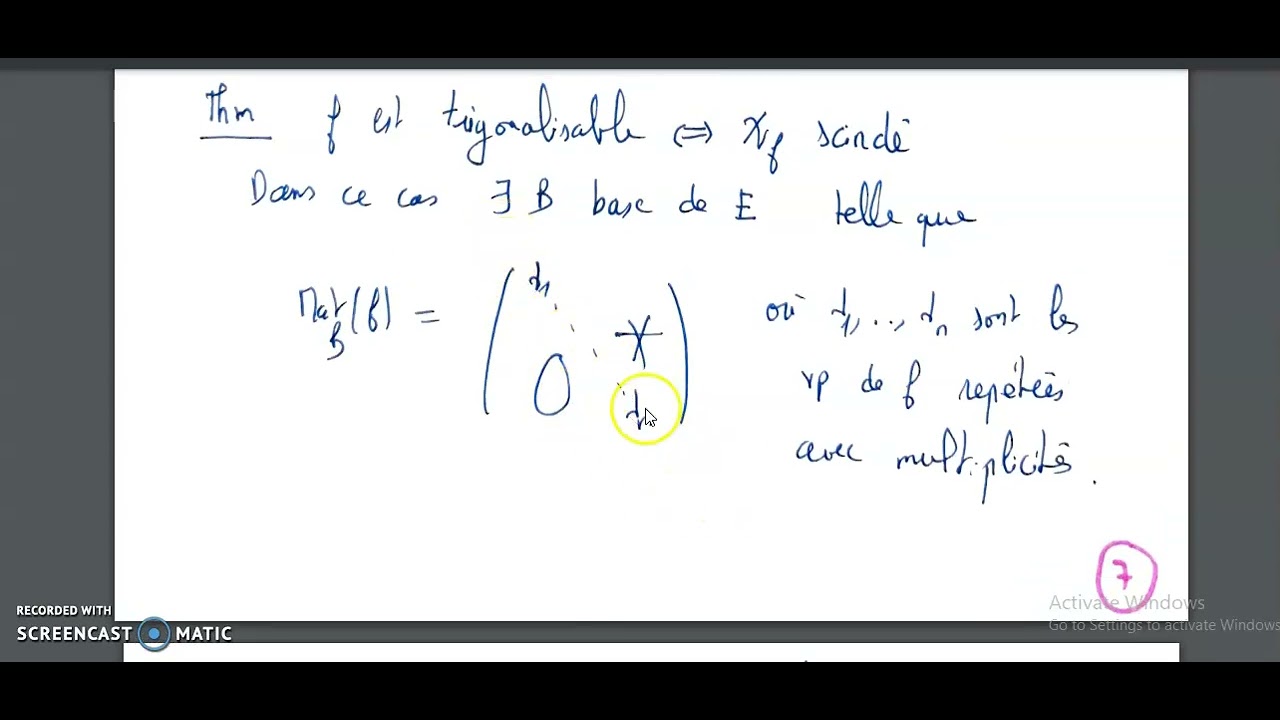 Thm f est trigonalisable ⇔ χ_f scindé
Dans ce cas ∃ B base de E telle que
Mat_B(f) = ( λ₁ ⋱ * 0 λₙ ) où λ₁, .., λₙ sont les
vp de f repétées
avec multiplicités.
7
Activate Windows
Go to Settings to activate Windows
RECORDED WITH
SCREENCAST MATIC